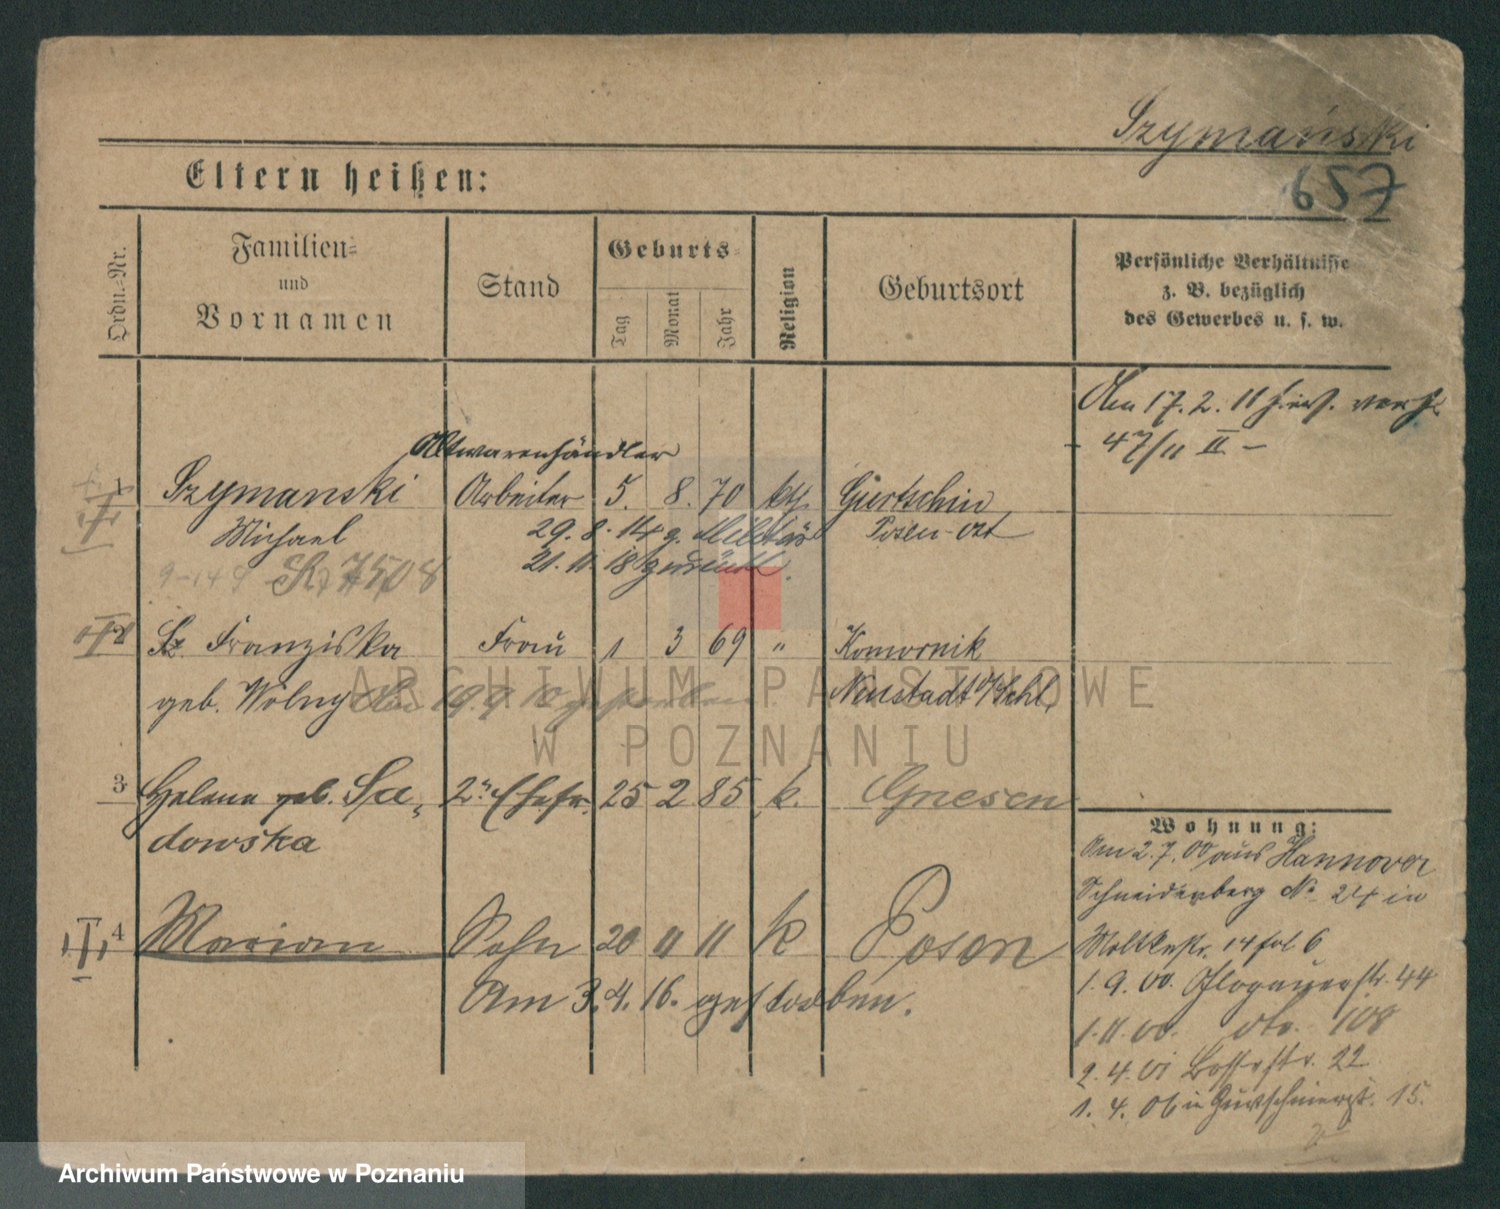 Szymański
657
Eltern heißen:
Ordn.-Nr.
Familien-
und
Vornamen
Stand
Geburts-
Tag
Monat
Jahr
Religion
Geburtsort
Persönliche Verhältnisse
z. B. bezüglich
des Gewerbes u. s. w.
Am 17. 2. 11
47/11 II -
Altwarenhändler
1 Szymanski Arbeiter 5. 8. 70 kth. Gurtschin
Michael 29. 8. 14 z. Militär Posen-Ost
21. 11. 18 zurück.
7508
2 Sz. Franziska Frau 1 3 69 " Komornik
geb. Wolny gestorben Neustadt
3 Helena geb. Sa- 2te Ehefr. 25 2 85 k. Gnesen
dowska
Wohnung:
Am 2. 7. 00 aus Hannover
Schneiderberg No 24 in
4 Marian Sohn 20 11 11 k Posen
Moltkestr. 14
Am 3. 4. 16. gestorben.
1. 9. 00. Glogauerstr. 44
1. 11. 00. dto. 108
2. 4. 01 22
1. 4. 06 in 15.
ARCHIWUM PAŃSTWOWE
W POZNANIU
Archiwum Państwowe w Poznaniu